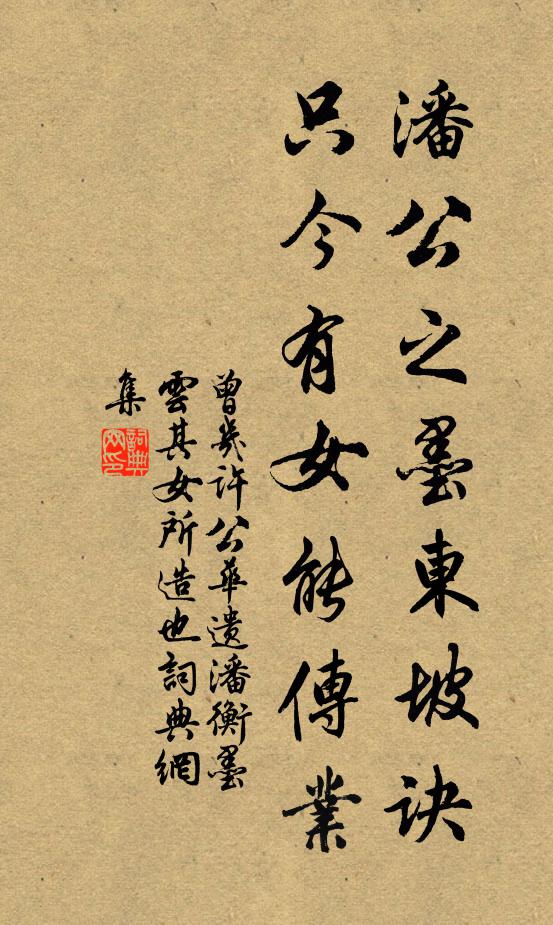 潘公之墨東坡訣
只今有女能傳業
曾幾許公華遺潘衡墨
雲其女所造也詞典網
集
詞典網印